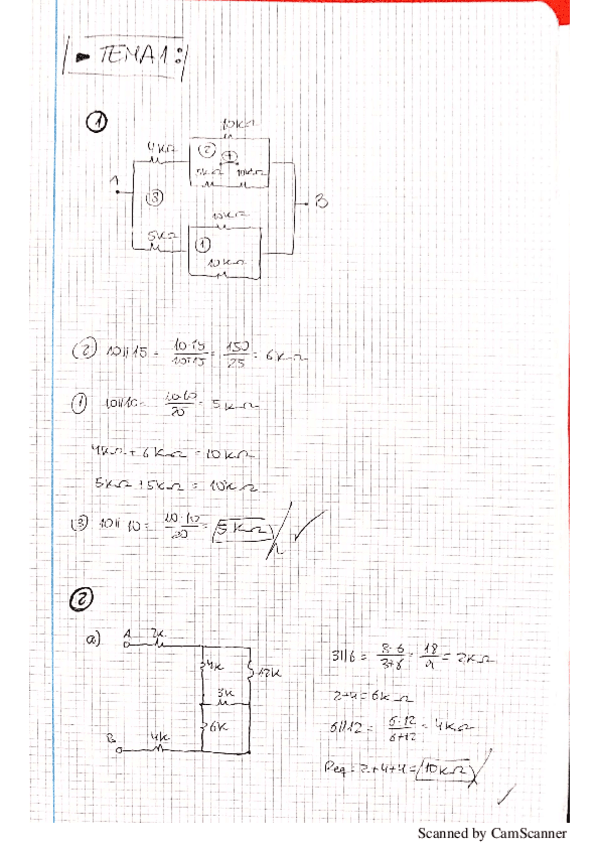 TEMA 1:
1
10KΩ
4KΩ
2
+
5KΩ 10KΩ
A
3
B
10KΩ
5KΩ
1
10KΩ
2 10||15 = 10·15/10+15 = 150/25 = 6KΩ
1 10||10 = 10·10/20 = 5KΩ
4KΩ + 6KΩ = 10KΩ
5KΩ + 5KΩ = 10KΩ
3 10||10 = 10·10/20 = 5KΩ
2
a) A 2K
4K 12K
3K
6K
B 4K
3||6 = 3·6/3+6 = 18/9 = 2KΩ
2+4=6KΩ
6||12 = 6·12/6+12 = 4KΩ
Req = 2+4+4 = 10KΩ
Scanned by CamScanner